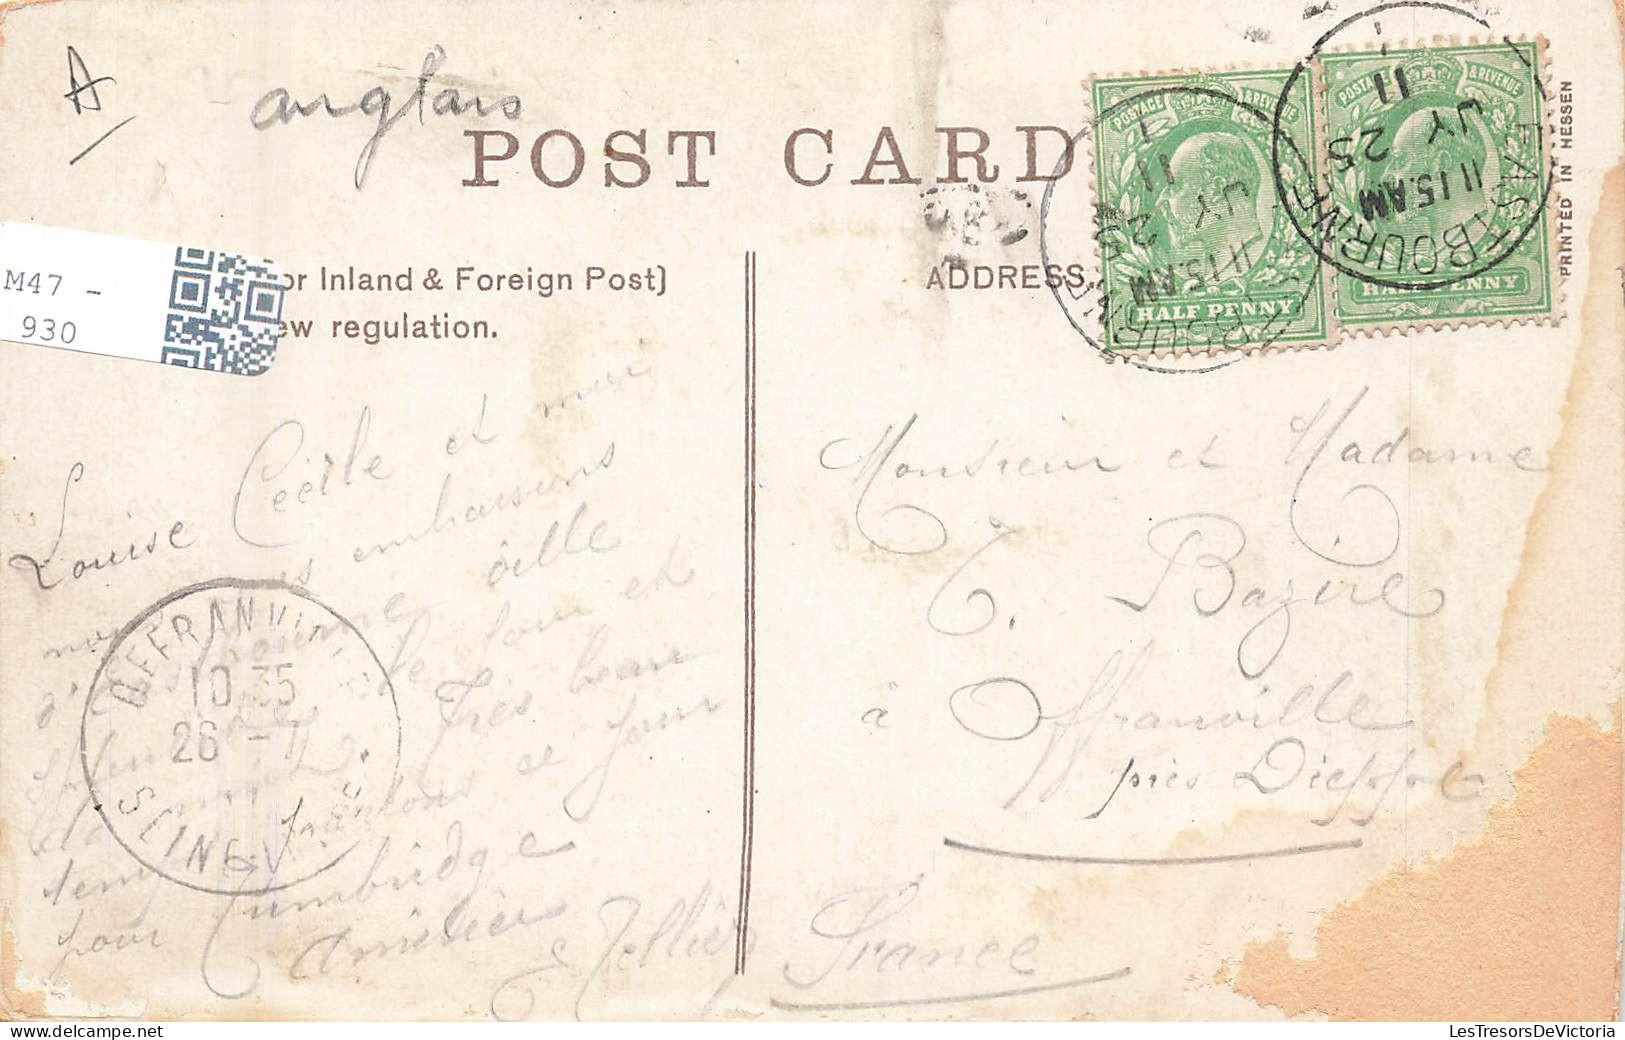 A anglais
POST CARD
M47 -
930
or Inland & Foreign Post)
ew regulation.
ADDRESS
PRINTED IN HESSEN
POSTAGE & REVENUE
HALF PENNY
EASTBOURNE
11 15 AM
JY 25
11
POSTAGE & REVENUE
HALF PENNY
EASTBOURNE
11 15 AM
JY 25
11
Louise Cécile et moi
embrassons
le tour et
Très beau
temps partons ce jour
pour Tumbridge
Amitiés
Tellier
OFFRANVILLE
10 35
26 - 7
SEINE-INFRE
Monsieur et Madame
Bazire
à Offranville
près Dieppe
France
LesTresorsDeVictoria.com